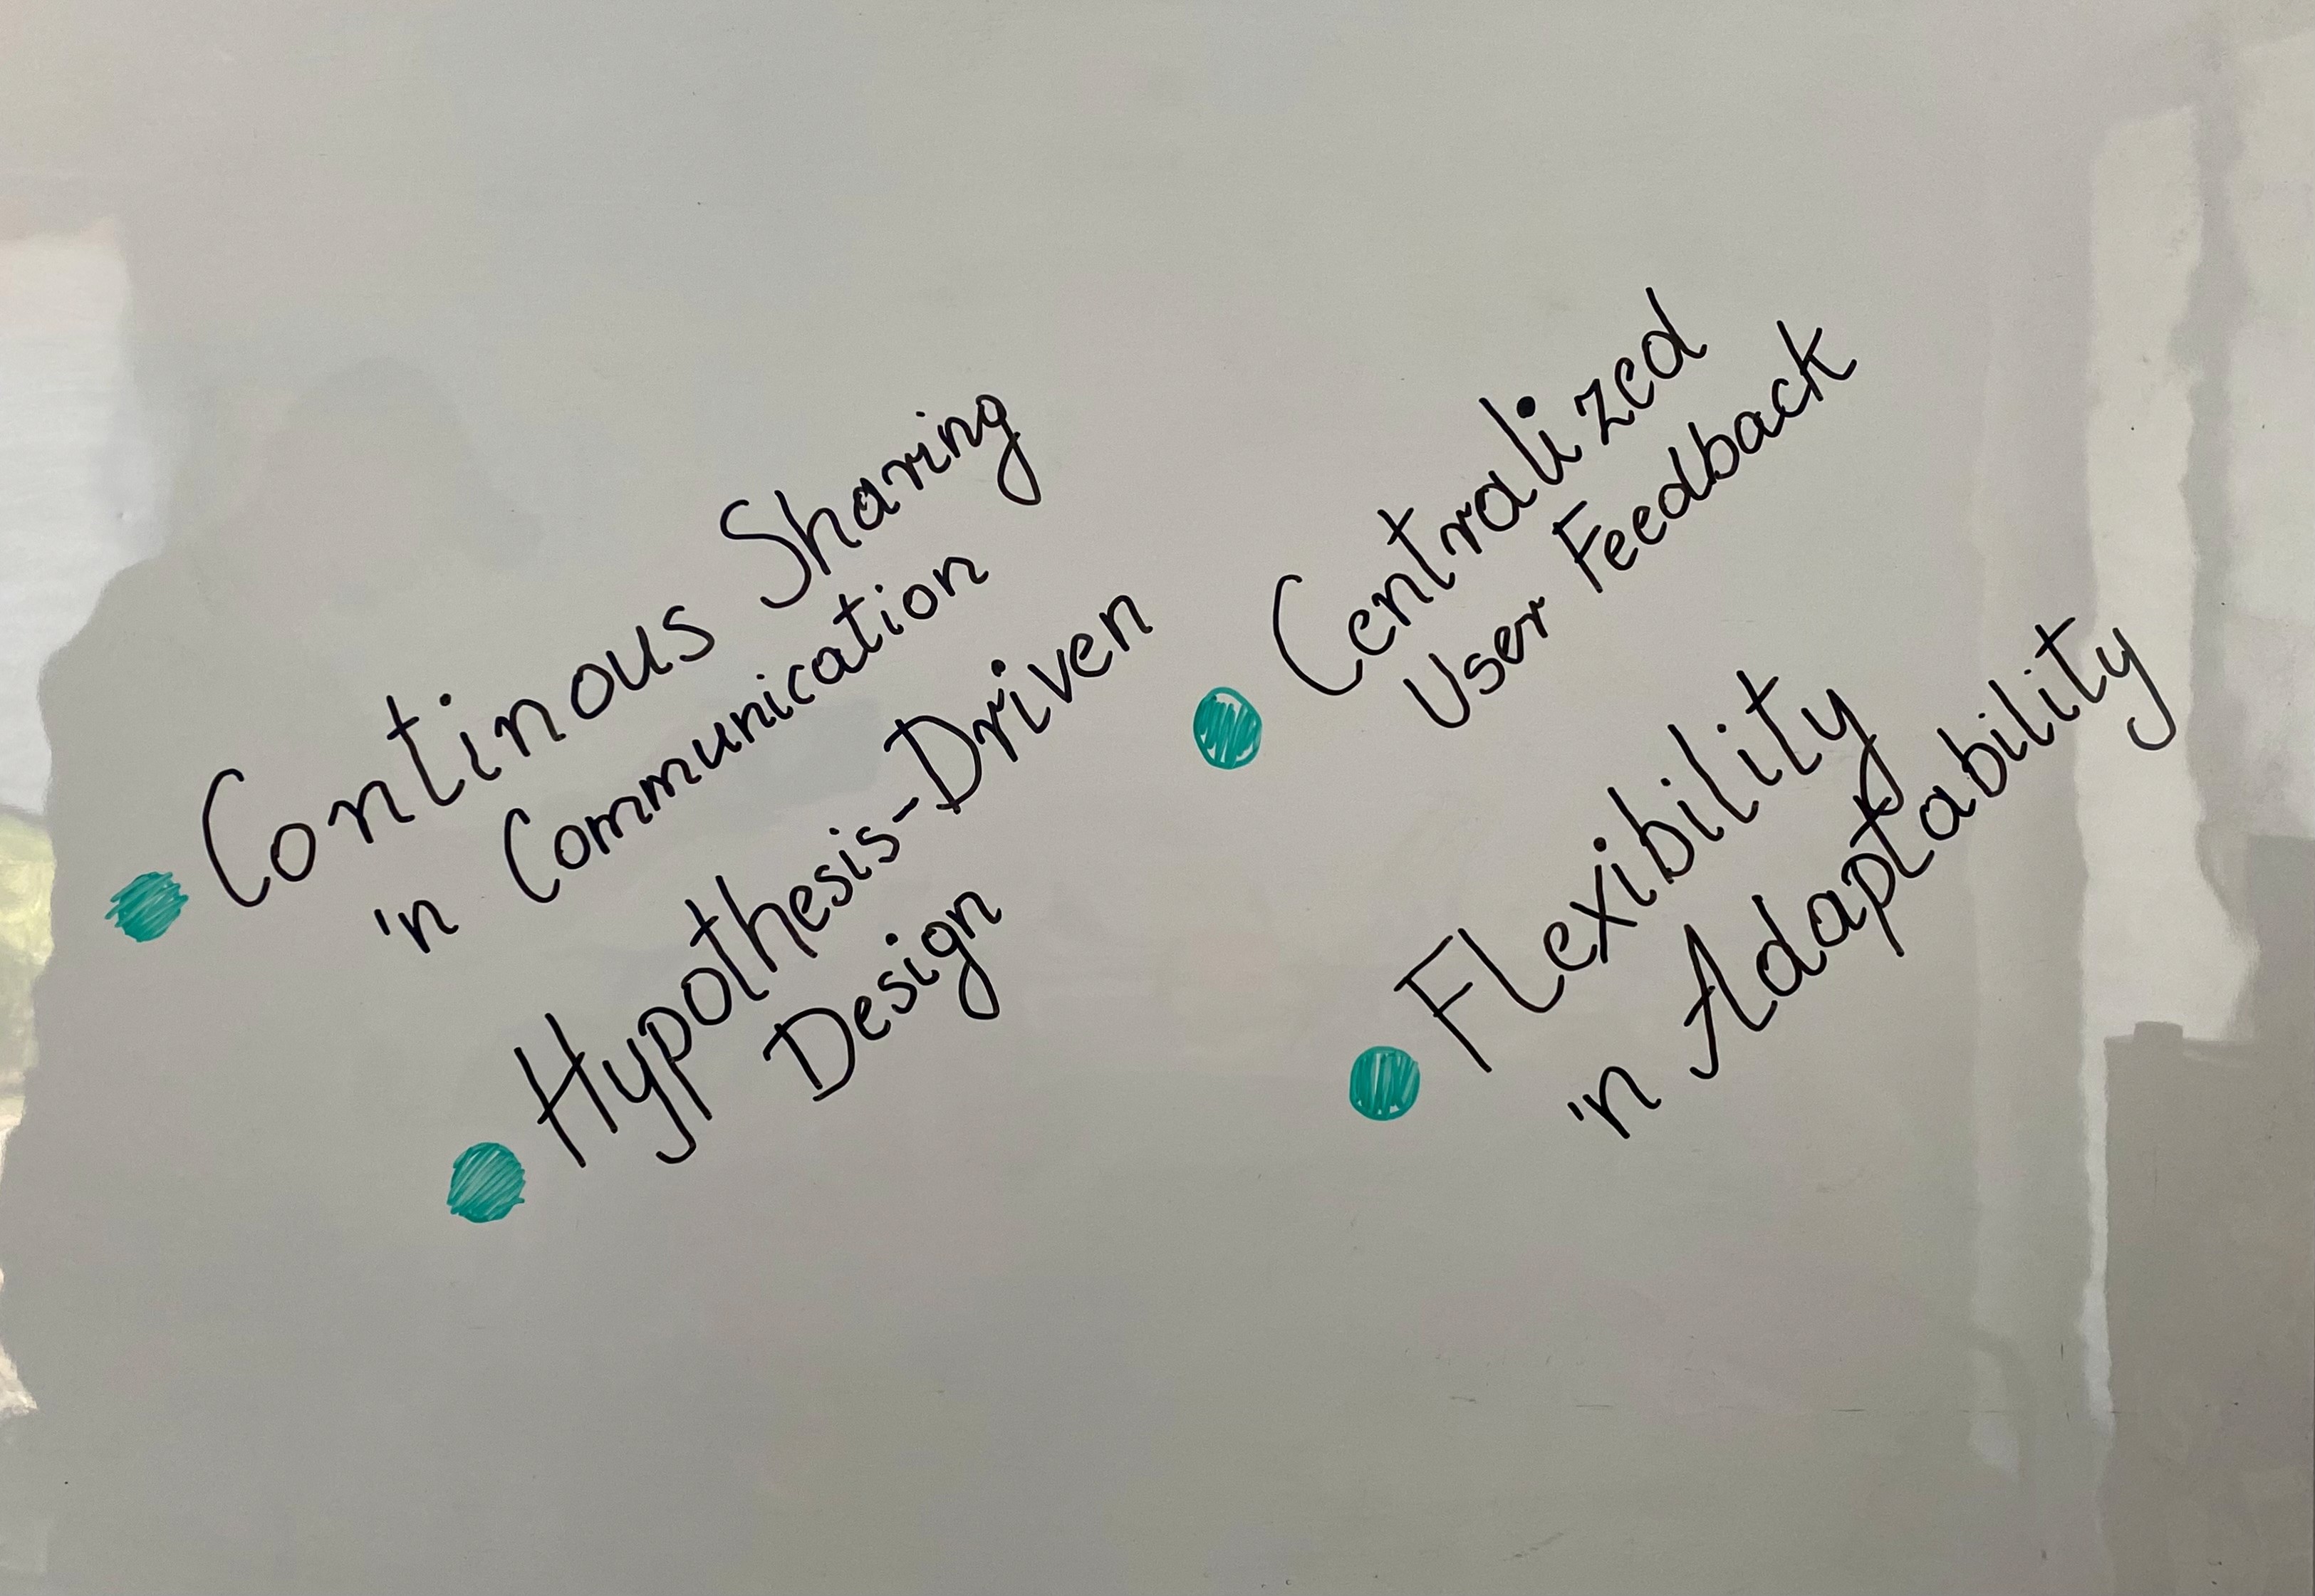 Continous Sharing
'n Communication
Hypothesis-Driven
Design
Centralized
User Feedback
Flexibility
'n Adaptability